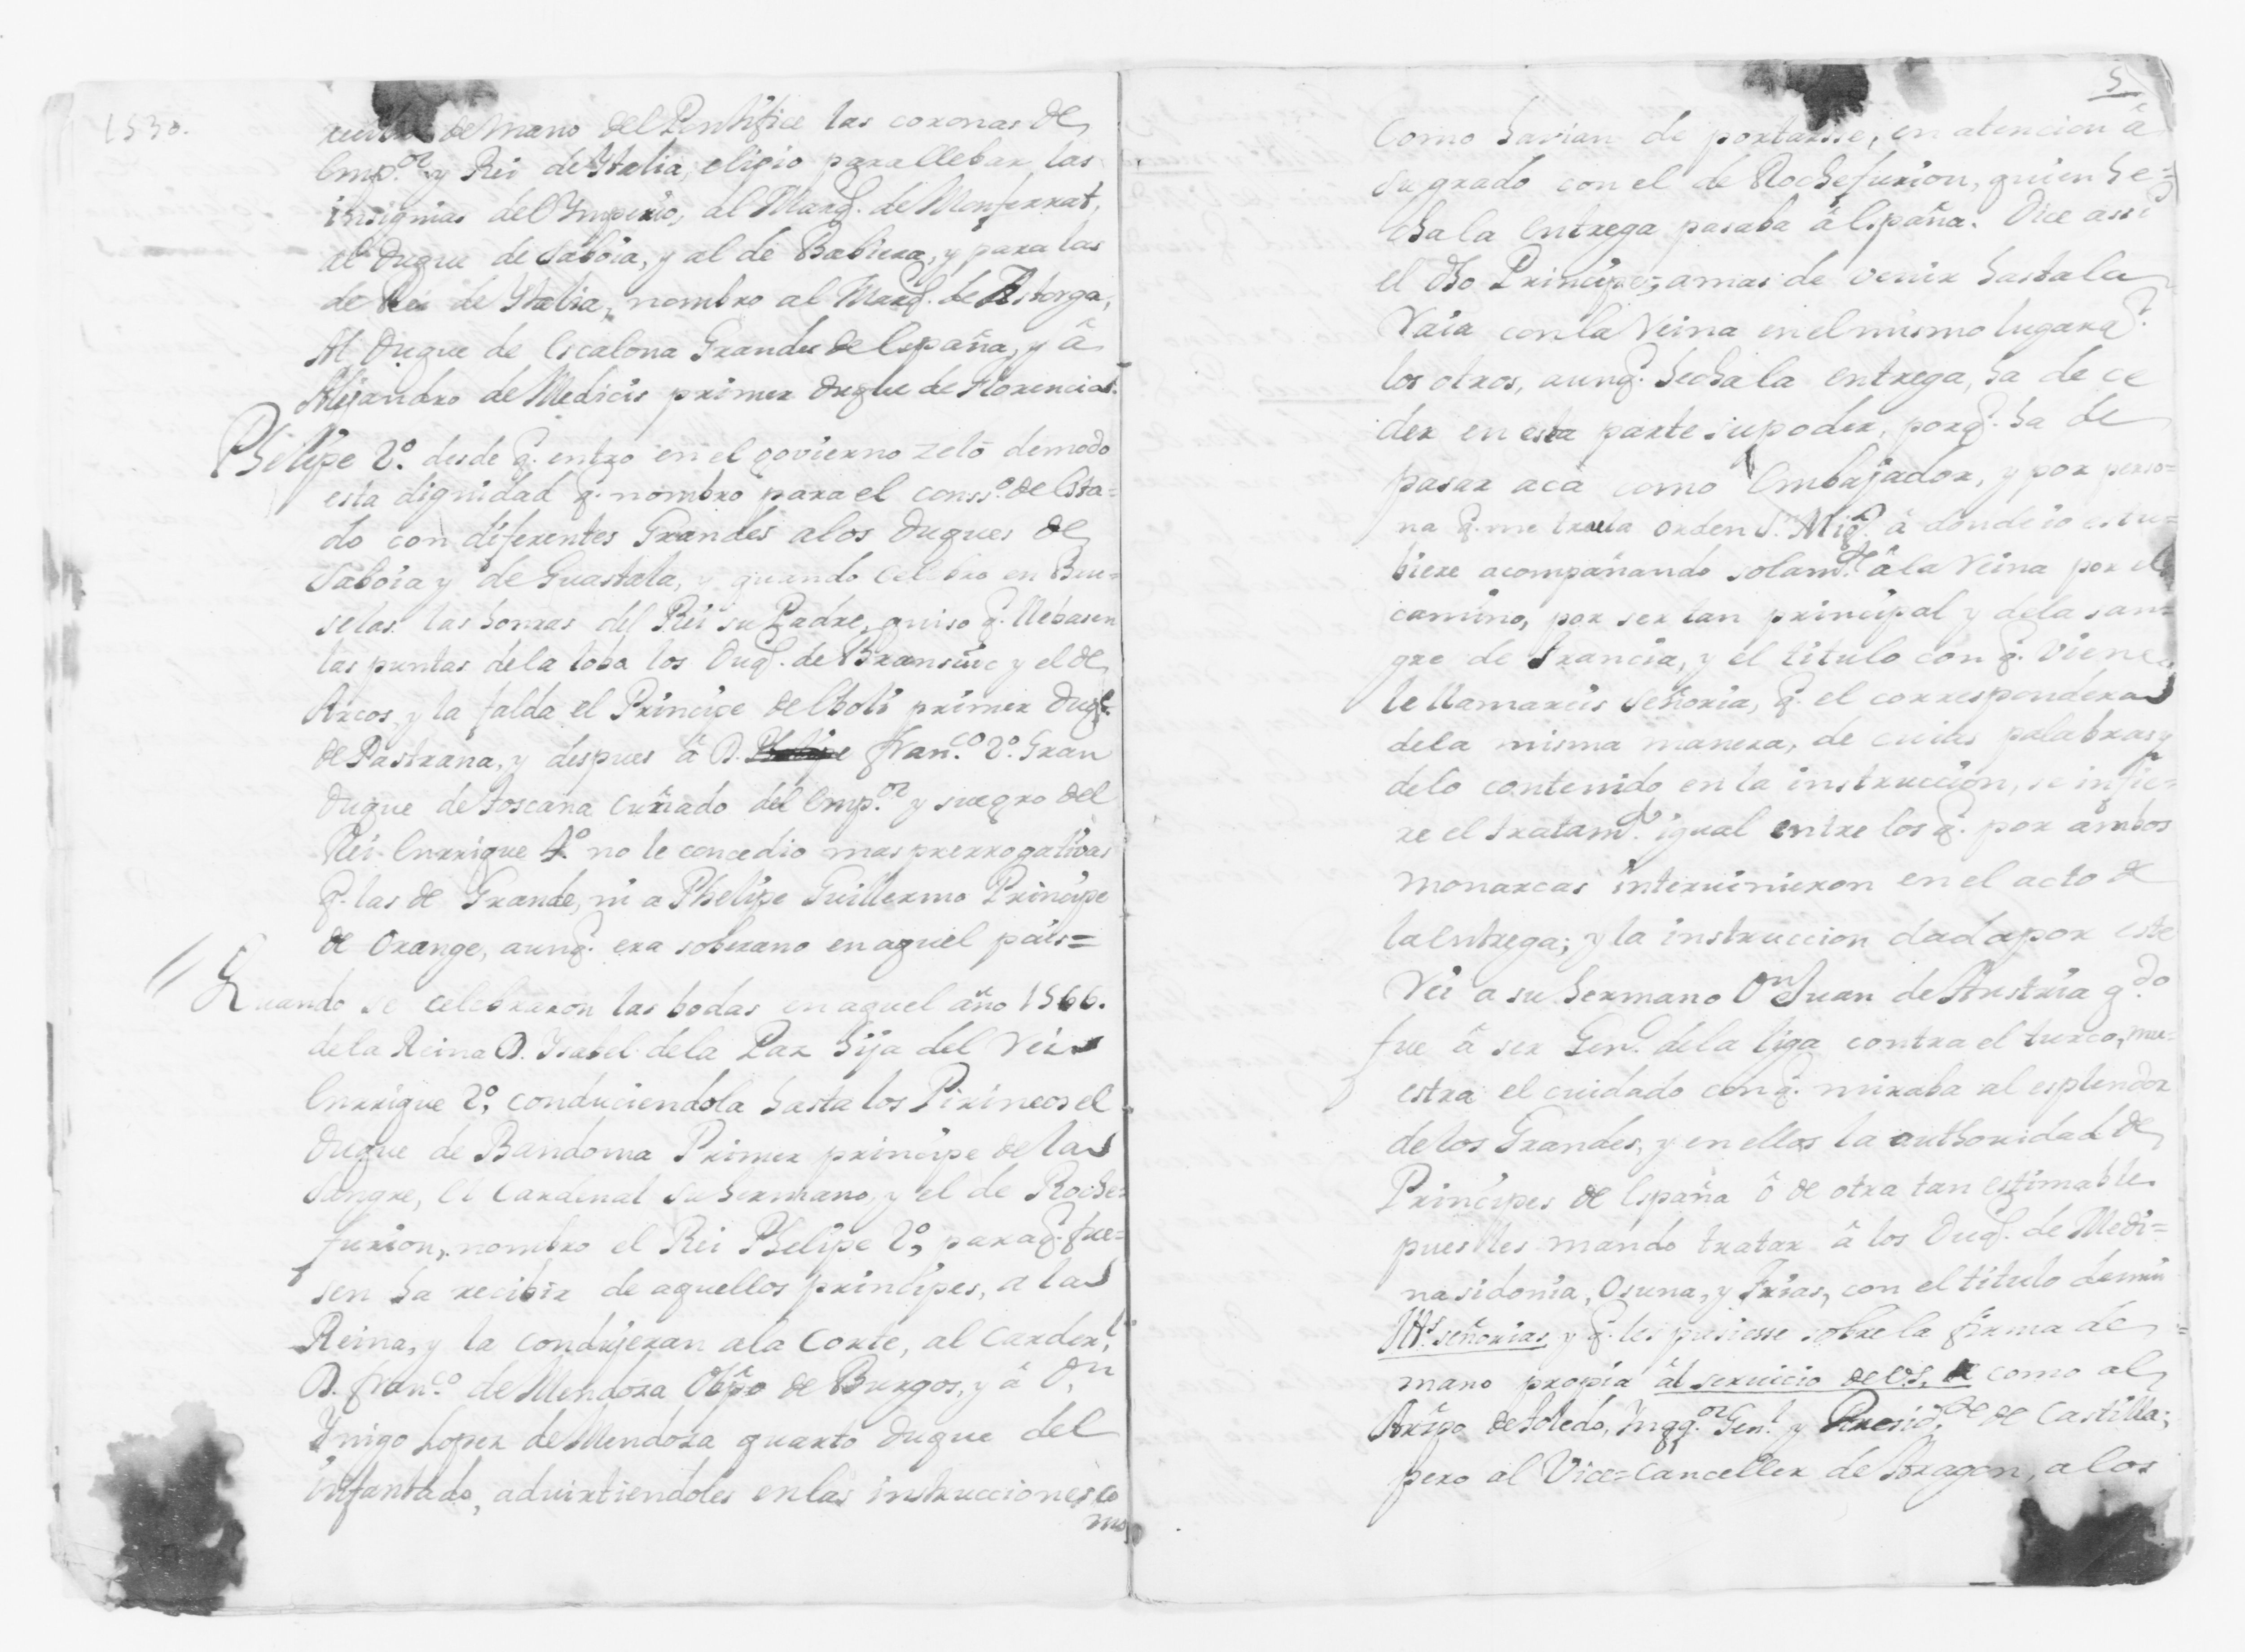 1530.
de mano del Pontifice las coronas de
Emp.or y Rei de Ytalia, eligio para llebar las
insignias del Ymperio, al Marq.s de Monferrat,
al Duque de Saboia, y al de Babiera, y para las
de Rei de Ytalia, nombro al Marq.s de Astorga,
Al Duque de Escalona Grandes de España, y â
Alejandro de Medicis primer Duque de Florencia.
Phelipe 2.º desde q. entro en el govierno zelò de modo
esta dignidad q. nombro para el conss.º de Esta=
do con diferentes Grandes a los Duques de
Saboia y de Guastala, y quando celebro en Bru=
selas las honras del Rei su Padre, quiso q. llebasen
las puntas de la loba los Duq.s de Bransuic y el de
Arcos, y la falda el Principe de Eboli primer Duq.e
de Pastrana, y despues â D. Fran.co 2.º Gran
Duque de Toscana cuñado del Emp.or y suegro del
Rei Enrrique 4.º no le concedio mas prerrogativas
q. las de Grande, ni a Phelipe Guillermo Principe
de Orange, aunq. era soberano en aquel païs=
// Quando se celebraron las bodas en aquel año 1566.
de la Reina D. Ysabel de la Paz hija del Rei
Enrrique 2.º, conduciendola hasta los Pirineos el
Duque de Bandoma Primer principe de la
Sangre, El Cardenal su hermano, y el de Roche=
furion, nombro el Rei Phelipe 2.º, para q. fue=
sen ha recibir de aquellos principes, a la
Reina, y la condujeran a la Corte, al Carden.l
D. Fran.co de Mendoza Obpo de Burgos, y â D.n
Ynigo Lopez de Mendoza quarto Duque del
infantado, advirtiendoles en las instrucciones co
mo
5
Como havian de portarsse, en atencion â
su grado con el de Rochefurion, quien he=
cha la Entrega pasaba â España. Dice assi
el dho Principe, a mas de venir hasta la
Raia con la Reina en el mismo lugar q.e
los otros, aunq. hecha la entrega, ha de ce
der en esta parte su poder, porq. ha de
pasar acà como Embajador, y por perso=
na q. me trae la orden S.n Mig.l â donde io estu=
biere acompañando solam.te â la Reina por el
camino, por ser tan principal y de la san=
gre de Francia, y el titulo con q. viene
le llamareis Señoria, q. el correspondera
de la misma manera, de cuias palabras y
de lo contenido en la instruccion, se infie=
re el tratam.to igual entre los q. por ambos
monarcas interuinieron en el acto de
la Entrega; y la instruccion dada por este
Rei a su hermano D.n Juan de Austria q.do
fue â ser Gen.l de la liga contra el turco, mu=
estra el cuidado con q. miraba al esplendor
de los Grandes, y en ellos la authoridad de
Principes de España ô de otra tan estimable
pues les mando tratar â los Duq.s de Medi=
nasidonia, Osuna, y Frias, con el titulo de mui
Ill.s señorias, y q. les pusiesse sobre la firma de
mano propia âl seruicio de V.S. como al
Arzpo de Toledo, Ynqq.or Gen.l y Presid.te de Castilla;
pero al Vice=Canceller de Aragon, a los